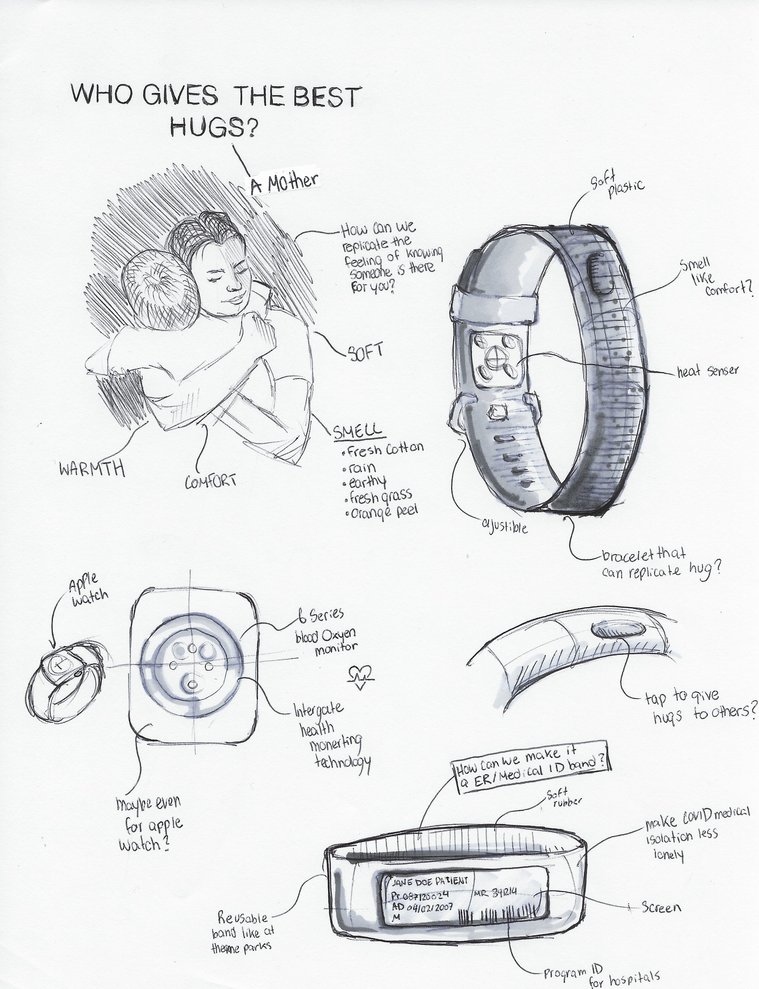 WHO GIVES THE BEST
HUGS?
A MOTHER
How can we
replicate the
feeling of knowing
someone is there
for you?
SOFT
SMELL
• fresh cotton
• rain
• earthy
• fresh grass
• orange peel
WARMTH
COMFORT
Soft
plastic
smell
like
comfort?
heat senser
ajustible
bracelet that
can replicate hug?
Apple
watch
6 Series
blood Oxyen
monitor
Intergate
health
monerting
technology
maybe even
for apple
watch?
tap to give
hugs to others?
How can we make it
a ER/Medical ID band?
Soft
rubber
make COVID medical
isolation less
lonely
JANE DOE PATIENT
Pt 087120024
MR 34R14
AD 04/02/2007
M
Screen
Reusable
band like at
theme parks
program ID
for hospitals